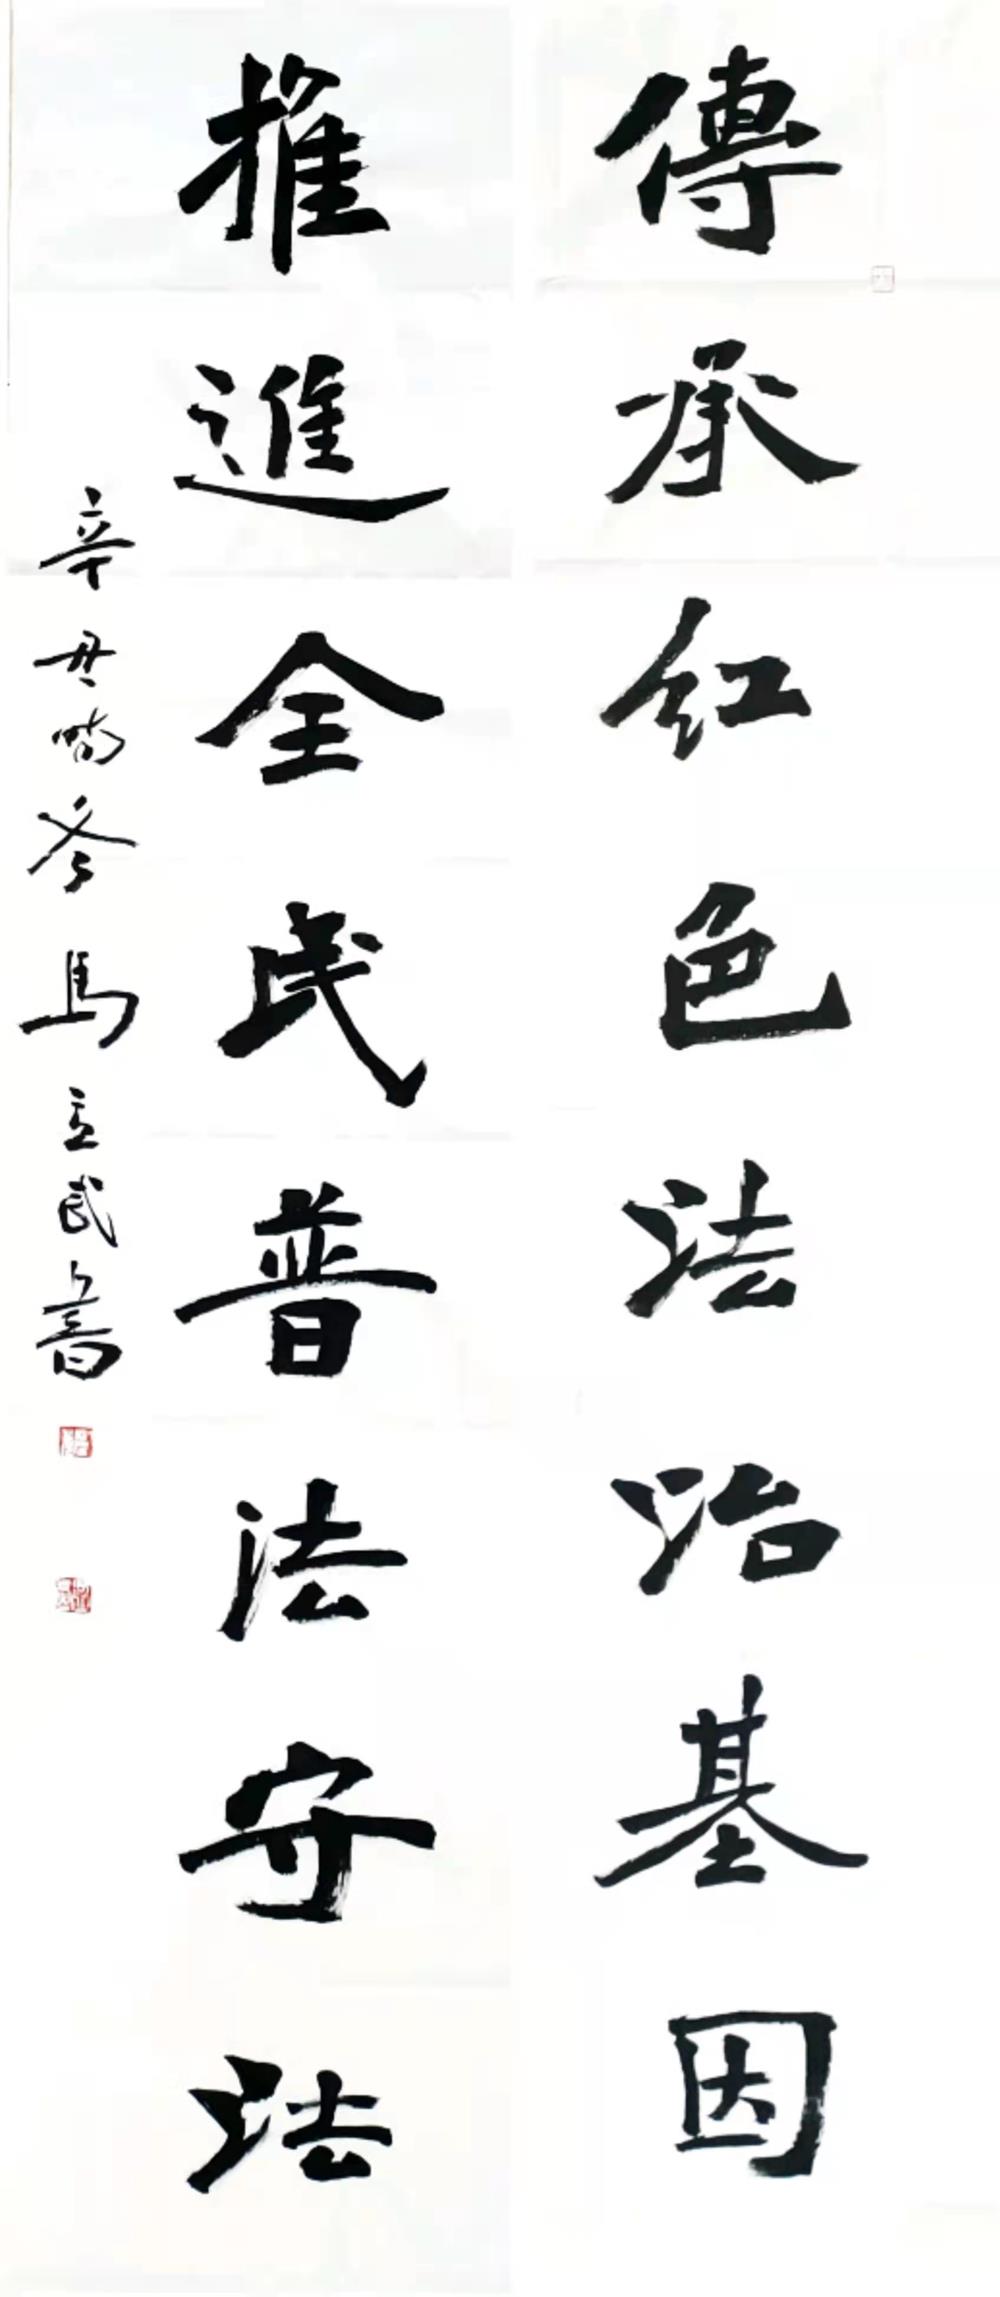 傳承红色法治基因
推進全民普法守法
辛丑初冬馬立武書